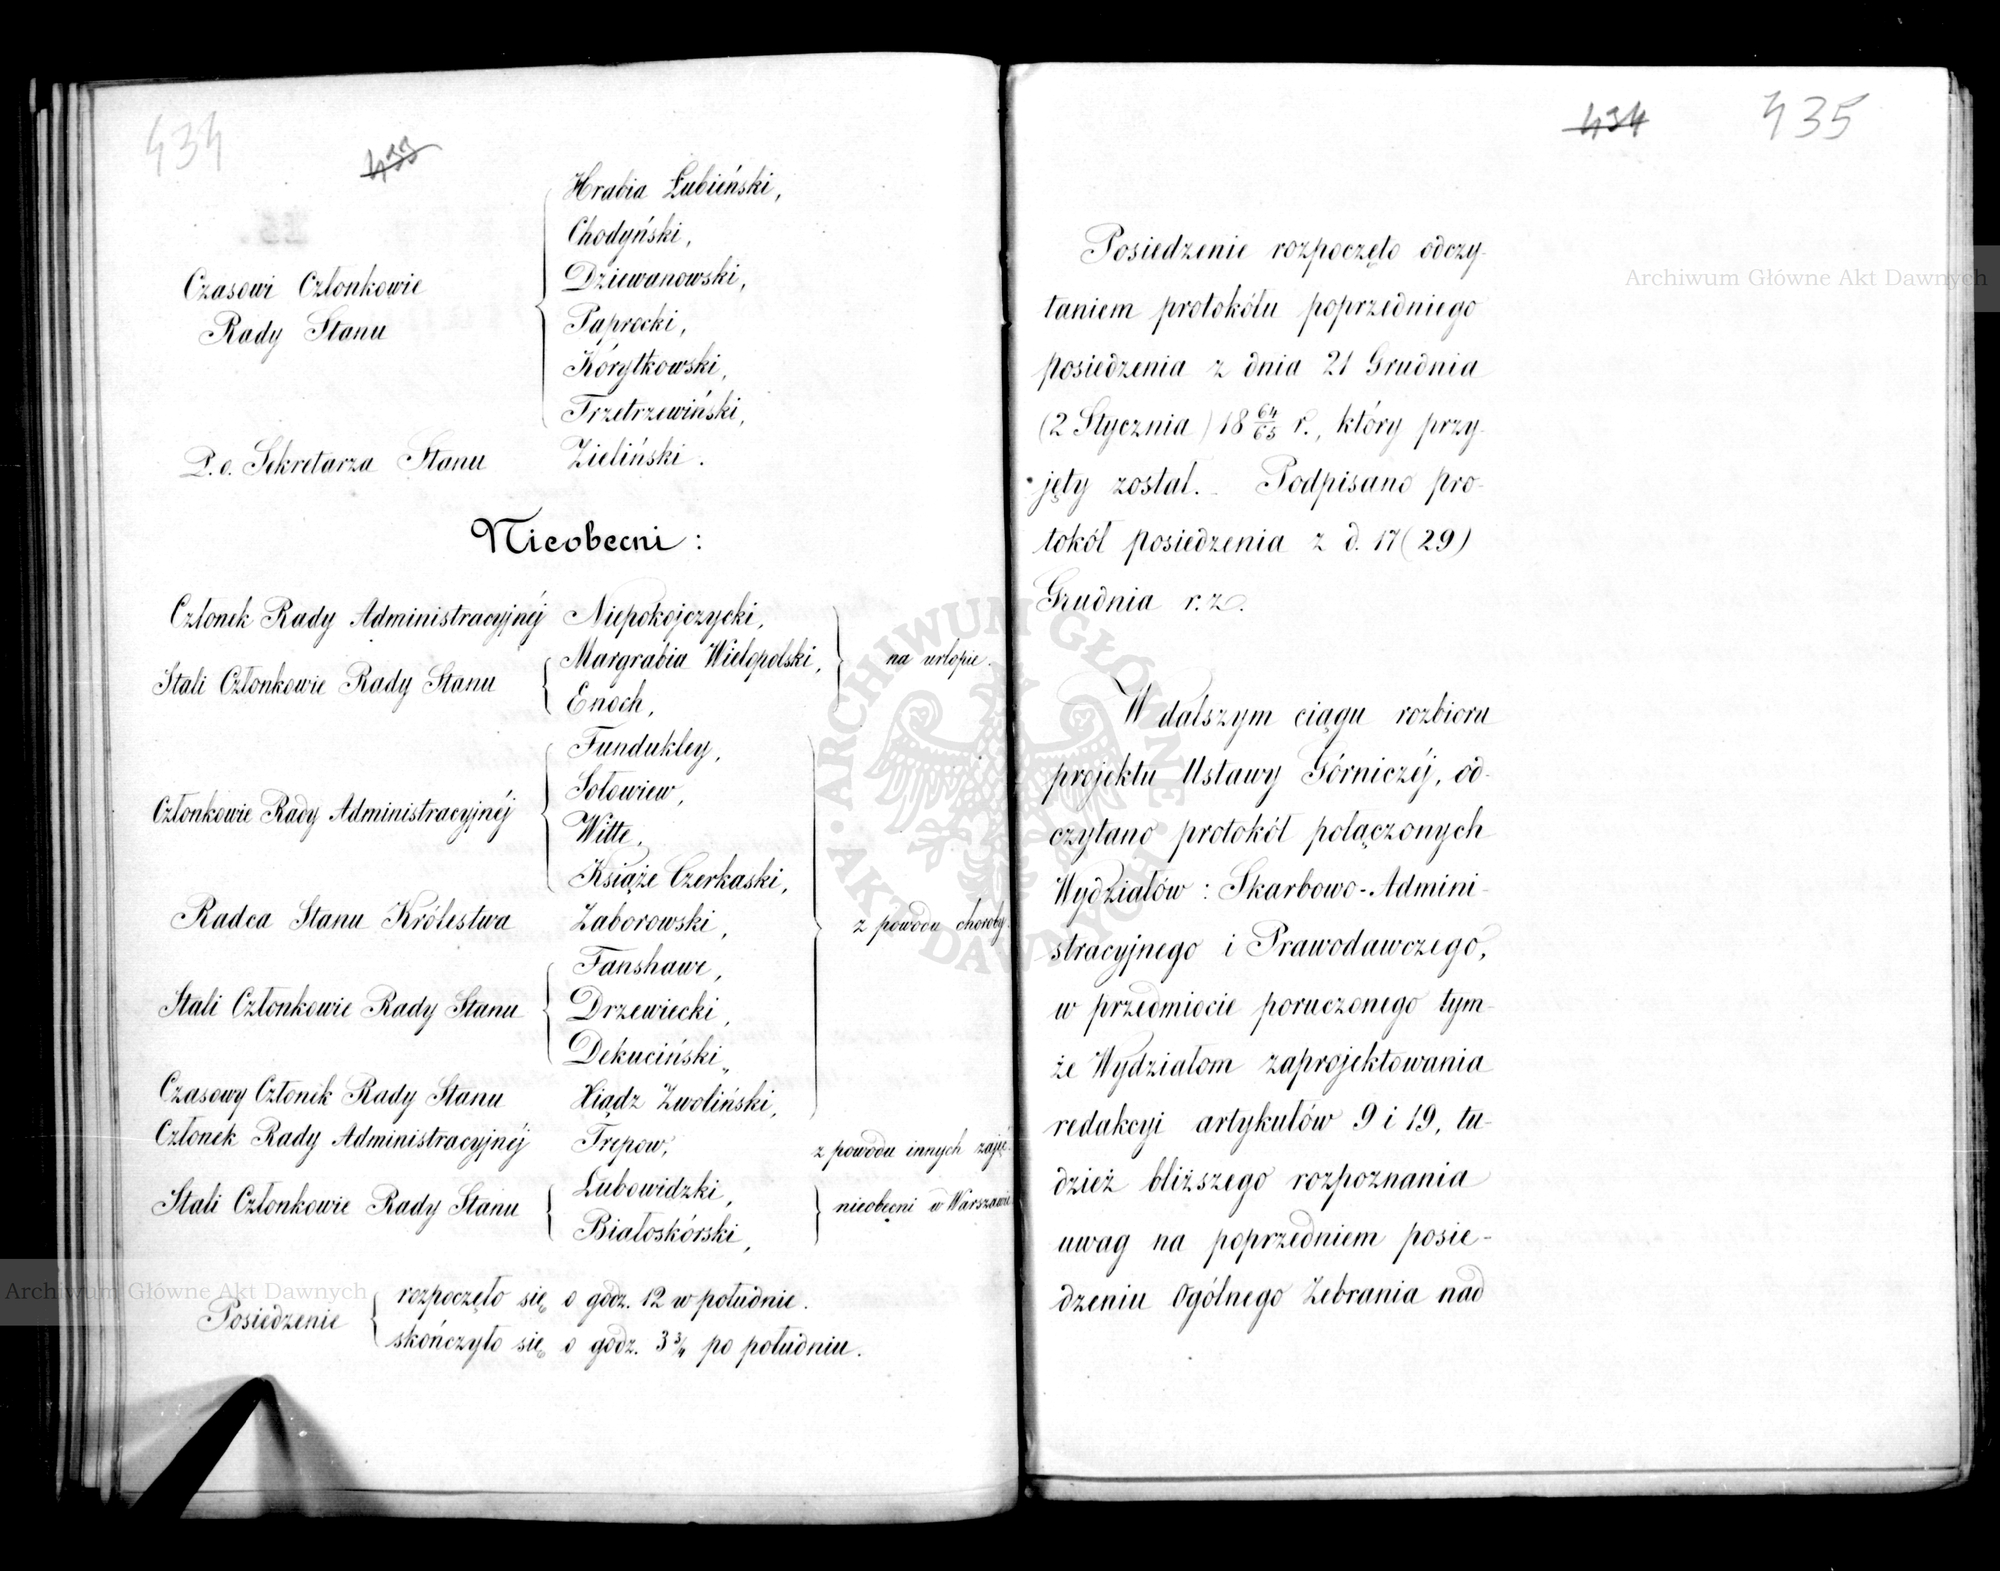 434
433
Hrabia Łubieński,
Chodyński,
Czasowi Członkowie
Rady Stanu
Dziewanowski,
Paprocki,
Kórytkowski,
Trzetrzewiński,
P. o. Sekretarza Stanu Zieliński.
Nieobecni:
Członek Rady Administracyjnéj Niepokojczycki,
Stali Członkowie Rady Stanu
Margrabia Wielopolski,
Enoch,
na urlopie.
Członkowie Rady Administracyjnéj
Fundukley,
Sołowiew,
Witte,
Książe Czerkaski,
Radca Stanu Królestwa Zaborowski,
z powodu choroby.
Stali Członkowie Rady Stanu
Fanshawe,
Drzewiecki,
Dekuciński,
Czasowy Członek Rady Stanu Xiądz Zwoliński,
Członek Rady Administracyjnéj Trepow, z powodu innych zajęć.
Stali Członkowie Rady Stanu
Łubowidzki,
Białoskórski,
nieobecni w Warszawie
Posiedzenie
rozpoczęło się o godz. 12 w południe.
skończyło się o godz. 3 3/4 po południu.
434 435
Posiedzenie rozpoczęło odczy-
taniem protokółu poprzedniego
posiedzenia z dnia 21 Grudnia
(2 Stycznia) 18 64/65 r., który przy-
jęty został. Podpisano pro-
tokół posiedzenia z d. 17 (29)
Grudnia r. z.
W dalszym ciągu rozbioru
projektu Ustawy Górniczéj, od-
czytano protokół połączonych
Wydziałów: Skarbowo-Admini-
stracyjnego i Prawodawczego,
w przedmiocie poruczonego tym-
że Wydziałom zaprojektowania
redakcyi artykułów 9 i 19, tu-
dzież bliższego rozpoznania
uwag na poprzedniem posie-
dzeniu Ogólnego Zebrania nad
Archiwum Główne Akt Dawnych
Archiwum Główne Akt Dawnych
· ARCHIWUM GŁÓWNE · AKT DAWNYCH